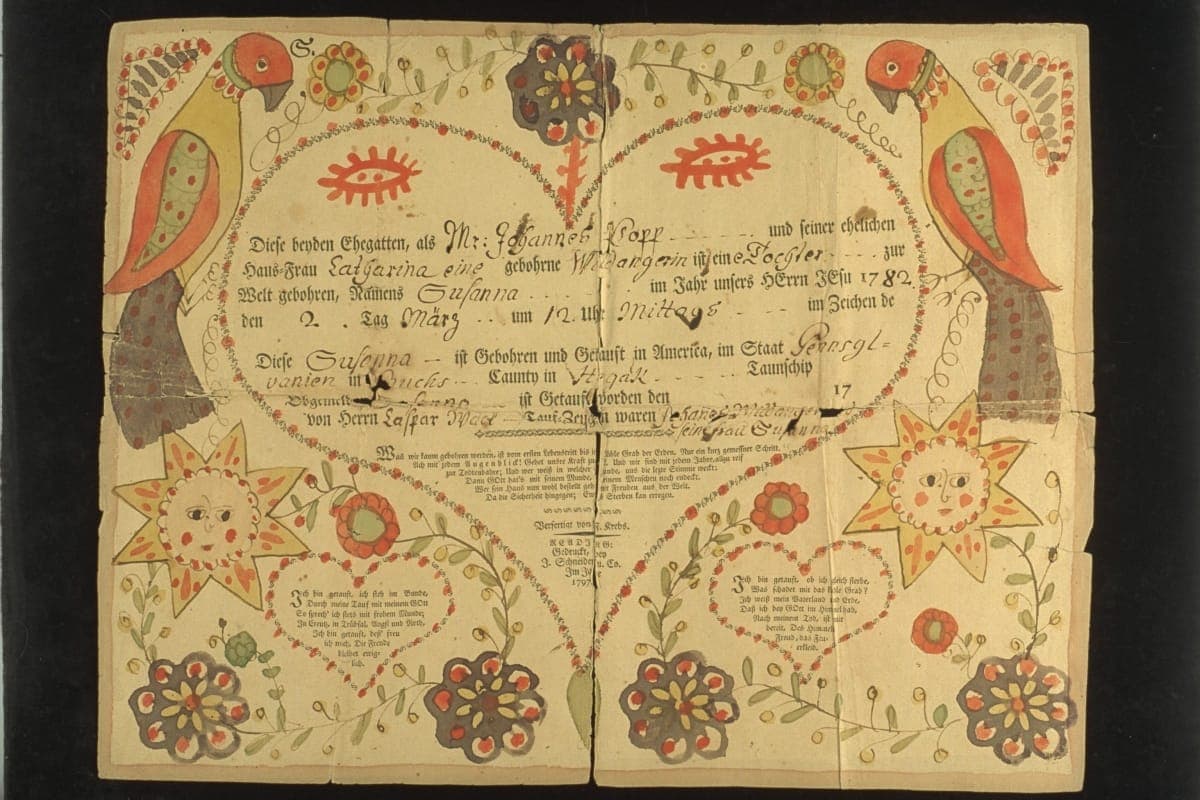 S.
Diese beyden Ehegatten, als Mr: Johannes Popp und seiner ehelichen
Haus-Frau Catharina eine gebohrne ist eine Tochter zur
Welt gebohren, Namens Susanna im Jahr unsers HErrn JEsu 1782.
den 2. Tag März um 12 Uhr Mittags im Zeichen de
Diese Susanna ist Gebohren und Getauft in America, im Staat Pennsyl=
vanien in Buchs Caunty in Taunschip
Obgemeldte Susanna ist Getauft worden den 17
von Herrn Caspar Tauf-Zeugen waren
seine frau Susanna
Was wir kaum gebohren werden, ist vom ersten Lebenstritt bis ins kühle Grab der Erden, Nur ein kurz gemessner Schritt.
Ach mit jedem Augenblick! Gehet unsre Kraft zurück, Und wir sind mit jedem Jahre, allzu reif
zur Todtenbahre; Und wer weiß in welcher Stunde, uns die lezte Stimme weckt:
Dann GOtt hat's mit seinem Munde, keinem Menschen noch endeckt.
Wer sein Haus nun wohl bestellt, geht mit Freuden aus der Welt.
Da die Sicherheit hingegen; Ewigs Sterben kan erregen.
Verfertiget von F. Krebs.
READING:
Gedruckt, bey
J. Schneider u. Co.
Im Jahr
1797
Ich bin getauft, ich steh im Bunde,
Durch meine Tauf mit meinem GOtt
So sprech' ich stets mit frohem Munde;
In Creutz, in Trübsal, Angst und Noth,
Ich bin getauft, deß' freu
ich mich, Die Freude
bleibet ewig-
lich.
Ich bin getauft, ob ich gleich sterbe,
Was schadet mir das kole Grab?
Ich weiß mein Vaterland und Erbe,
Daß ich bey GOtt im Himmel hab,
Nach meinem Tod, ist mir
bereit, Des Himmels
Freud, das Fey-
erkleid.